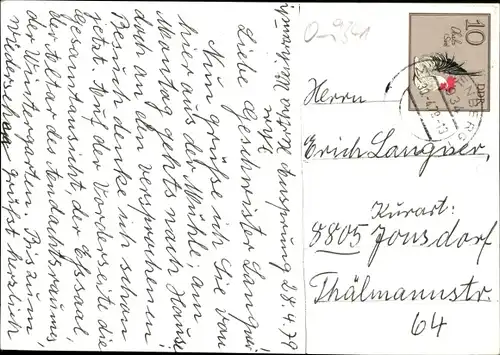 28.4.79
Liebe Geschwister Langner!
Nun grüße ich Sie vom
hier aus der Mühle, am
Montag gehts nach Hause
doch an den versprochenen
Besuch denke ich schon
jetzt. Auf der Vorderseite die
Gesamtansicht, der Eßsaal,
der Altar des Andachtsraumes,
der Wintergarten. Bis zum
Wiedersehen grüßt herzlich
Ihre Herta
O-9341
10
DDR
Herrn
Erich Langner,
Kurort:
8805 Jonsdorf
Thälmannstr.
64